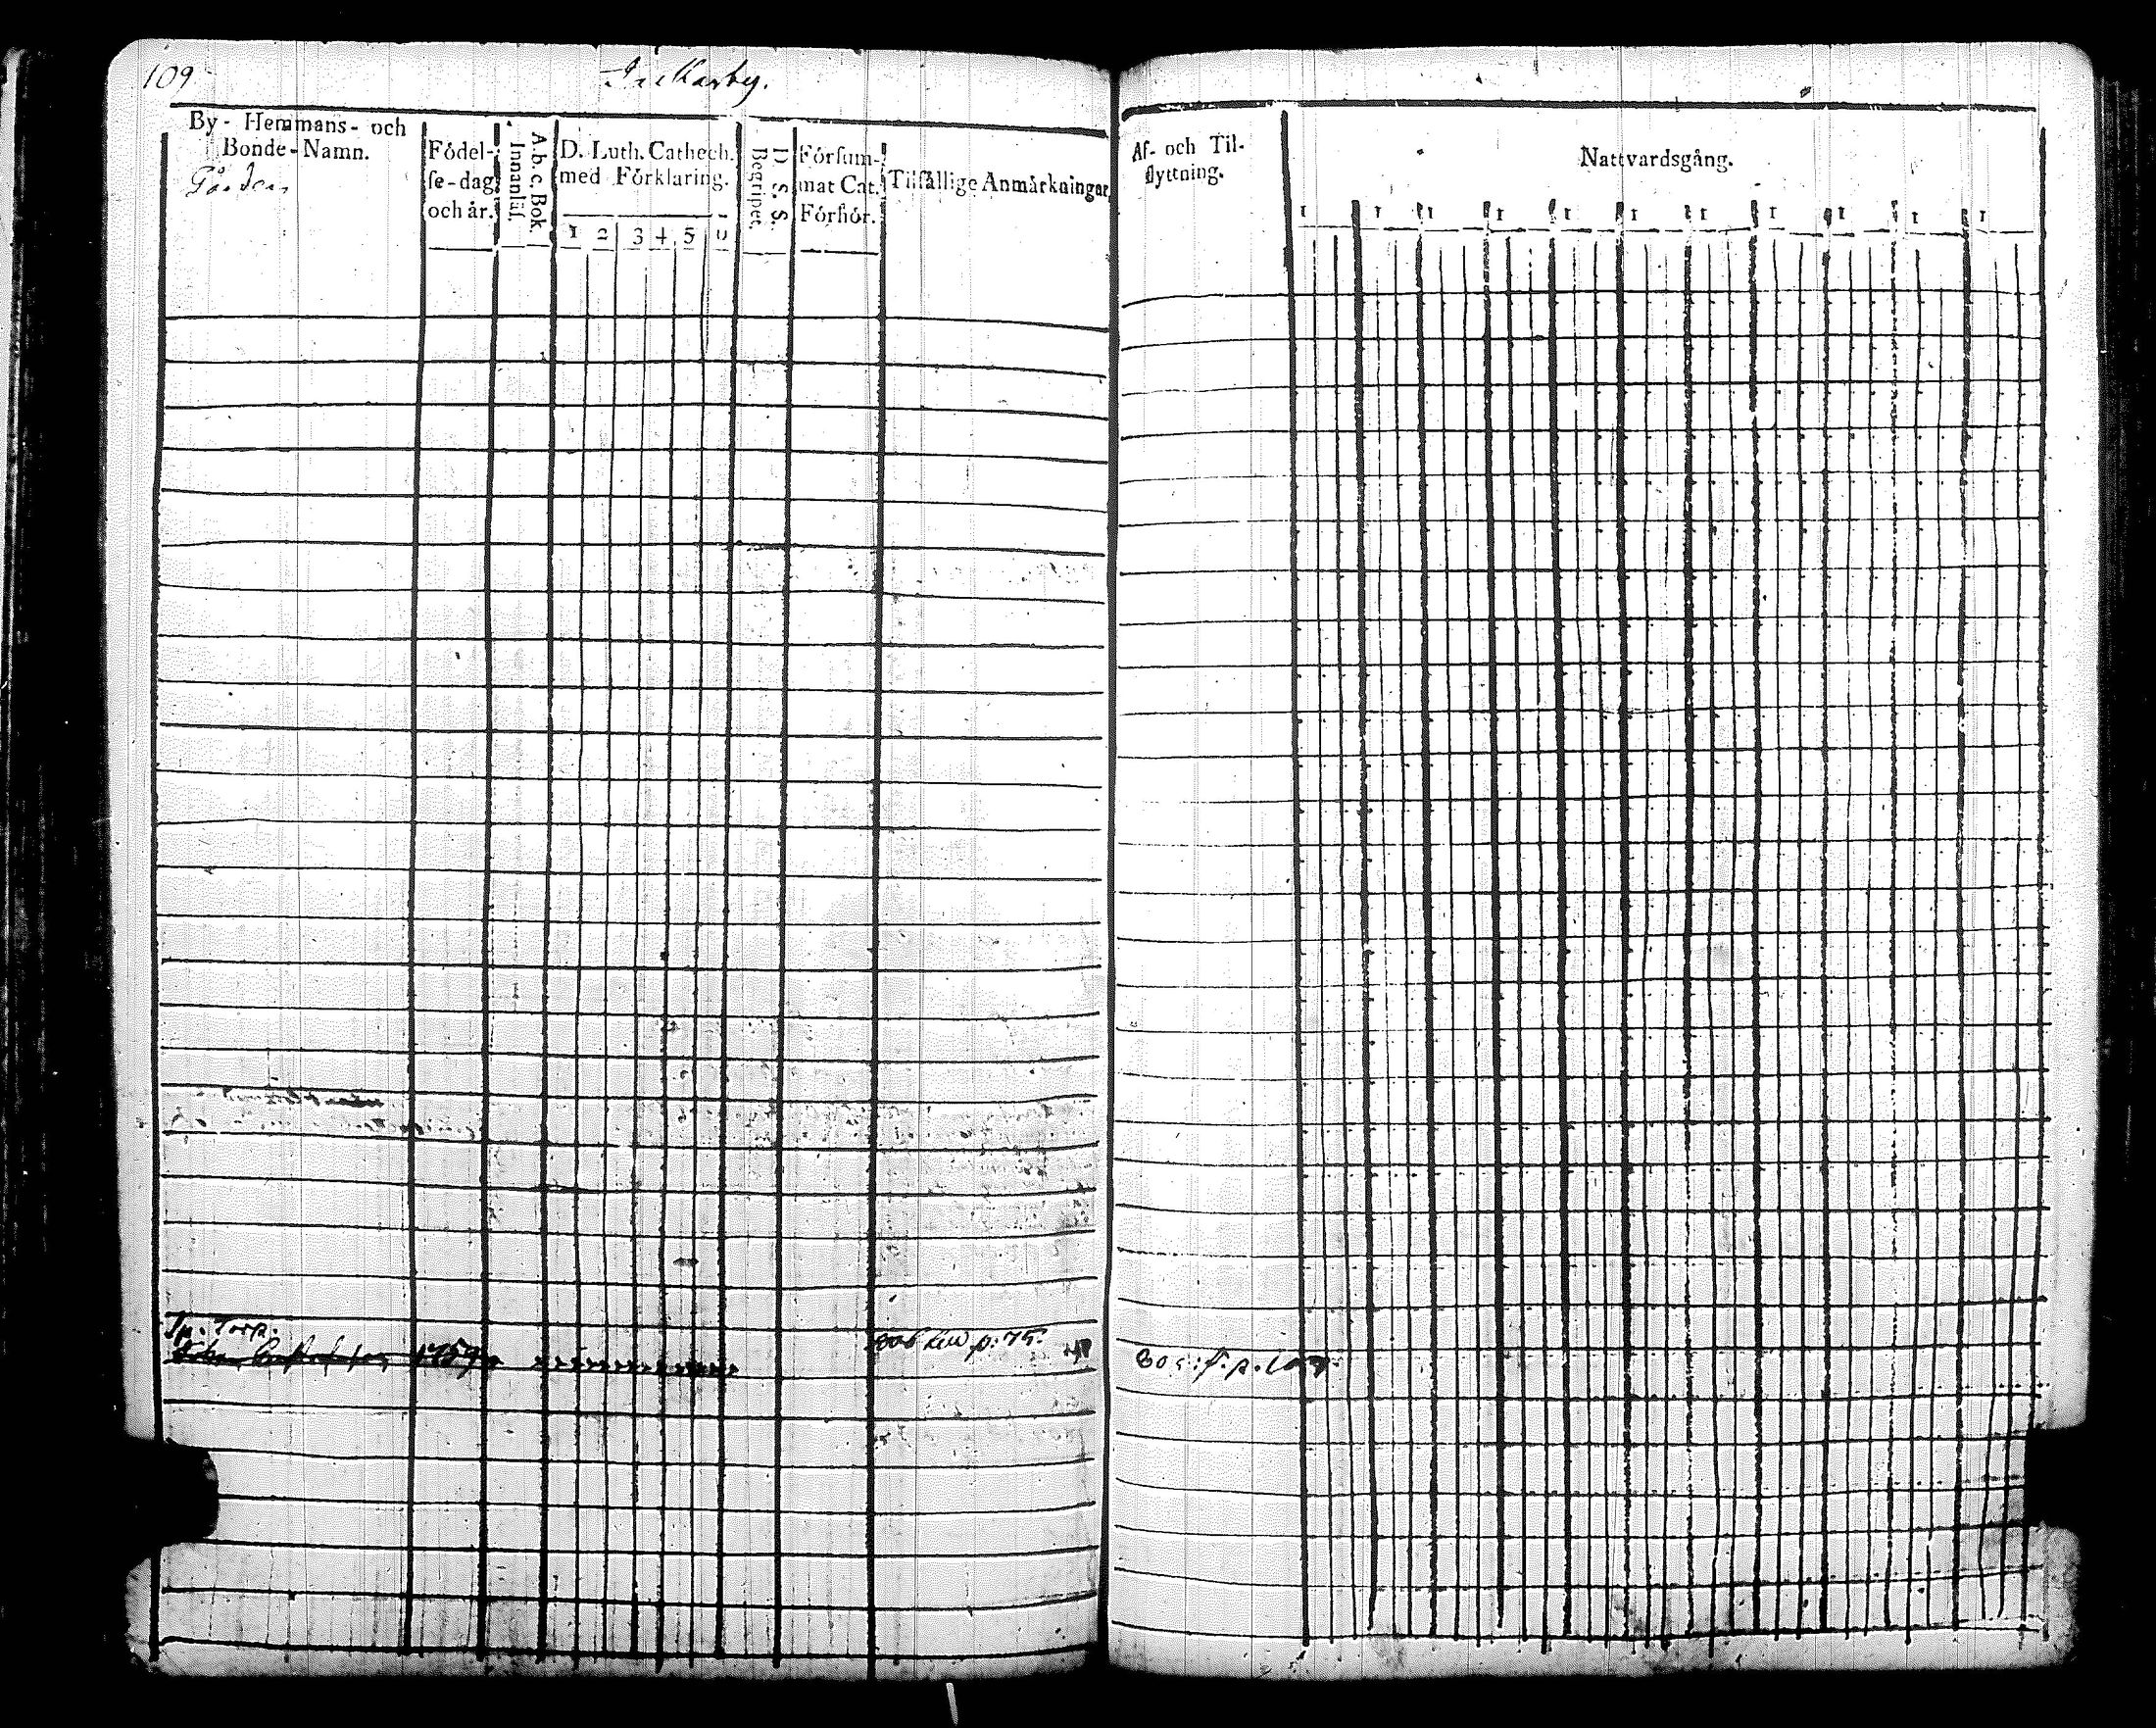 109
By- Hemmans- och
Bonde-Namn.
Gårdens
Födel-
se-dag
och år.
A.b.c. Bok.
Innanläs.
D. Luth. Cathech.
med Förklaring.
1 2 3 4 5
D. S. S.
Begripet.
Försum-
mat Cat.
Förhör.
Tilfällige Anmärkningar
Af- och Til-
flyttning.
Nattvardsgång.
1 1 1 1 1 1 1 1 1 1 1
Torp.
1759
p. 75.